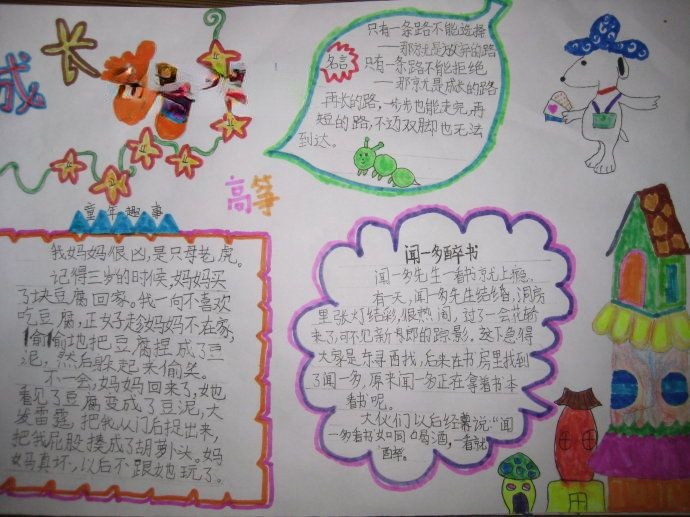 成长
名言
只有一条路不能选择
——那就是放弃的路
只有一条路不能拒绝
——那就是成长的路
再长的路，一步步也能走完，再
短的路，不迈双脚也无法
到达。
高等
童年趣事
我妈妈很凶，是只母老虎。
记得三岁的时候，妈妈买
了块豆腐回家。我一向不喜欢
吃豆腐，正好趁妈妈不在家，
偷偷地把豆腐捏成了豆
泥，然后躲起来偷笑。
不一会，妈妈回来了，她
看见了豆腐变成了豆泥，大
发雷霆，把我从门后捉出来，
把我屁股揍成了胡萝卜头。妈
妈真坏，以后不跟她玩了。
闻一多醉书
闻一多先生一看书就上瘾，
有一天，闻一多先生结婚，洞房
里张灯结彩，很热闹，过了一会花轿
来了，可不见新郎的踪影。这下急得
大家是东寻西找，后来在书房里找到
了闻一多，原来闻一多正在拿着书本
看书呢。
大伙们以后经常说：“闻
一多看书如同喝酒，一看就
醉。